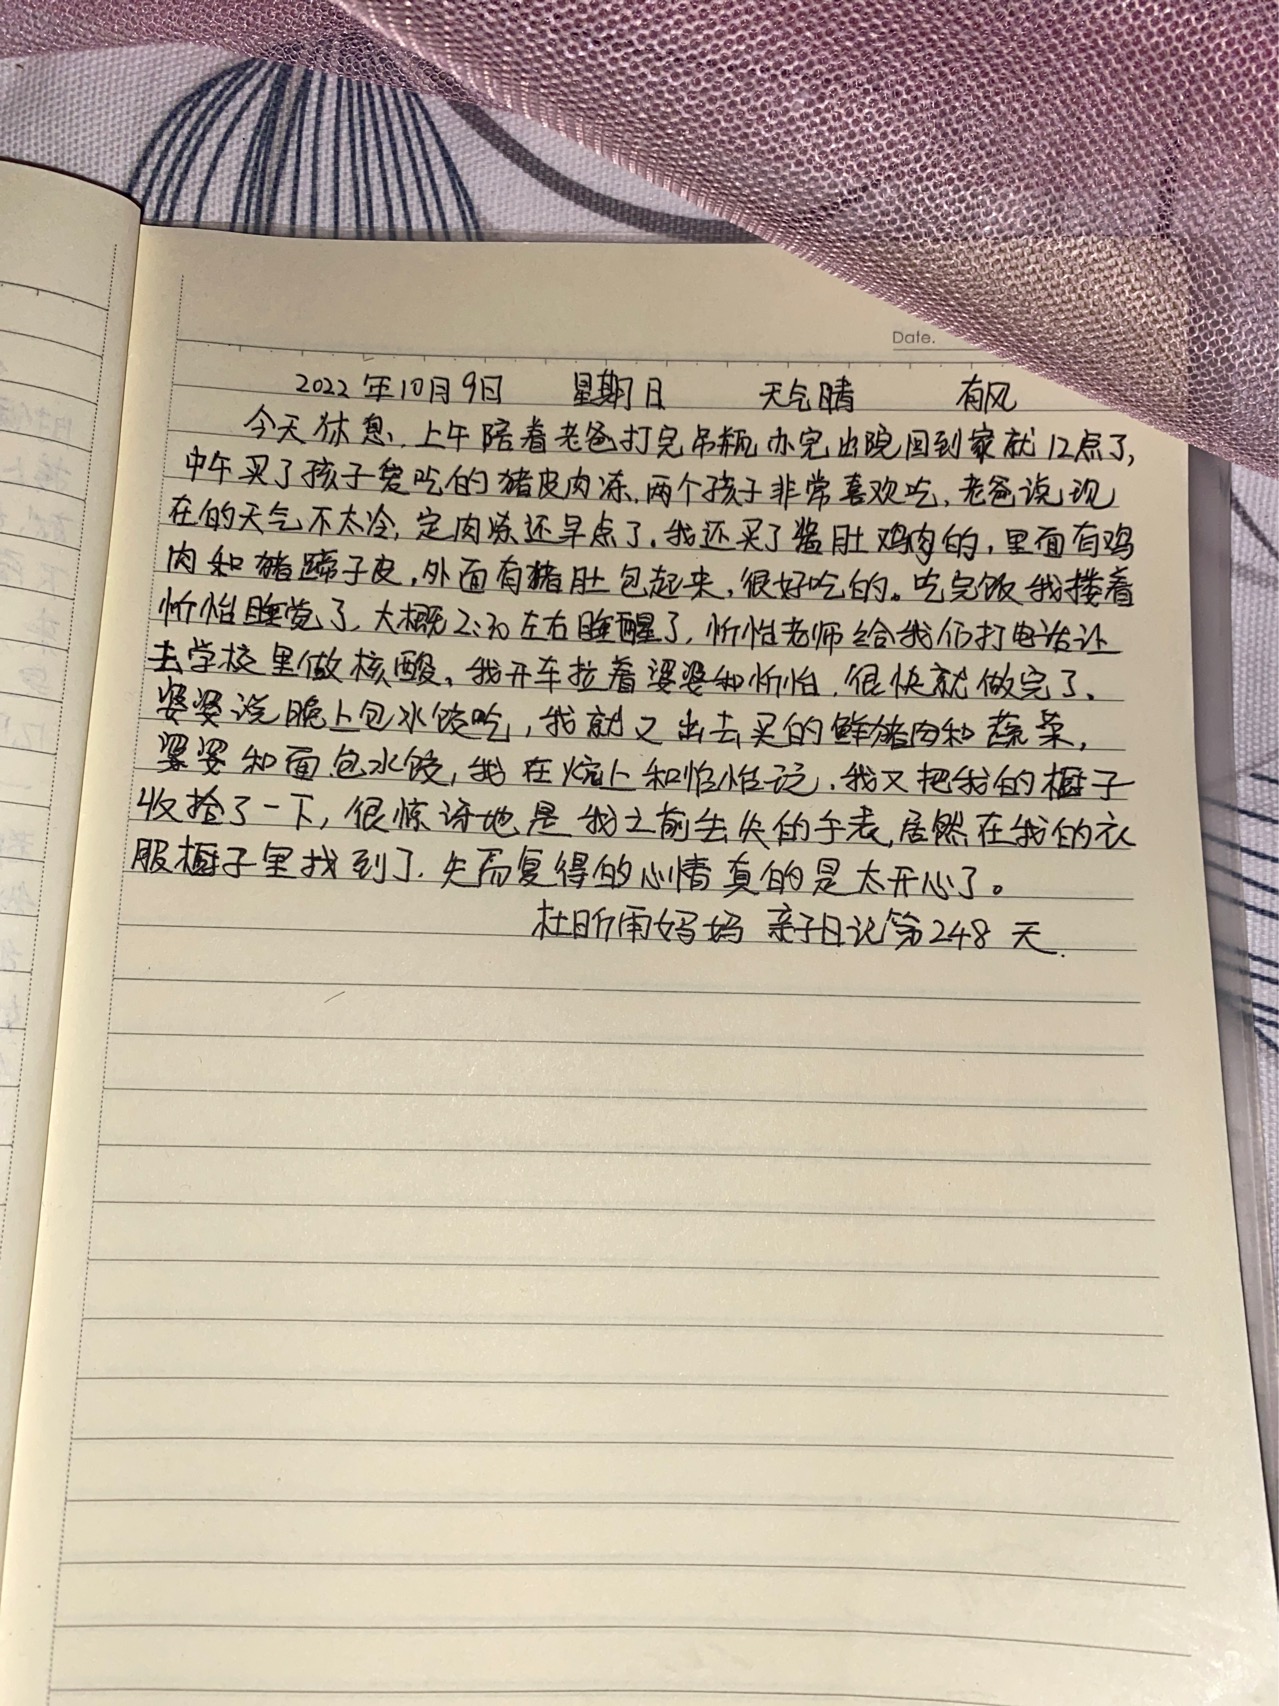 Date.
2022年10月9日 星期日 天气晴 有风
今天休息,上午陪着老爸打完吊瓶,办完出院回到家就12点了,
中午买了孩子爱吃的猪皮肉冻,两个孩子非常喜欢吃,老爸说现
在的天气不太冷,定肉冻还早点了。我还买了猪肚鸡肉的,里面有鸡
肉和猪蹄子皮,外面有猪肚包起来,很好吃的。吃完饭我搂着
忻怡睡觉了,大概2:30左右睡醒了,忻怡老师给我们打电话让
去学校里做核酸。我开车拉着婆婆和忻怡,很快就做完了。
婆婆说晚上包水饺吃,我就又出去买的鲜猪肉和蔬菜,
婆婆和面包水饺,我在炕上和怡怡玩,我又把我的橱子
收拾了一下,很惊讶地是我之前丢失的手表,居然在我的衣
服橱子里找到了,失而复得的心情真的是太开心了。
杜昕雨妈妈 亲子日记第248天.